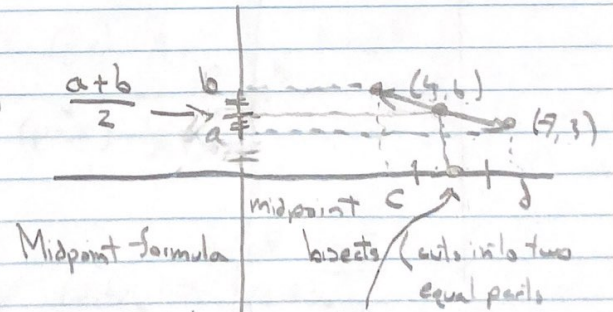 a+b
2
b
a
(4,6)
(7,3)
c
d
midpoint
Midpoint formula
bisects (cuts into two
equal parts